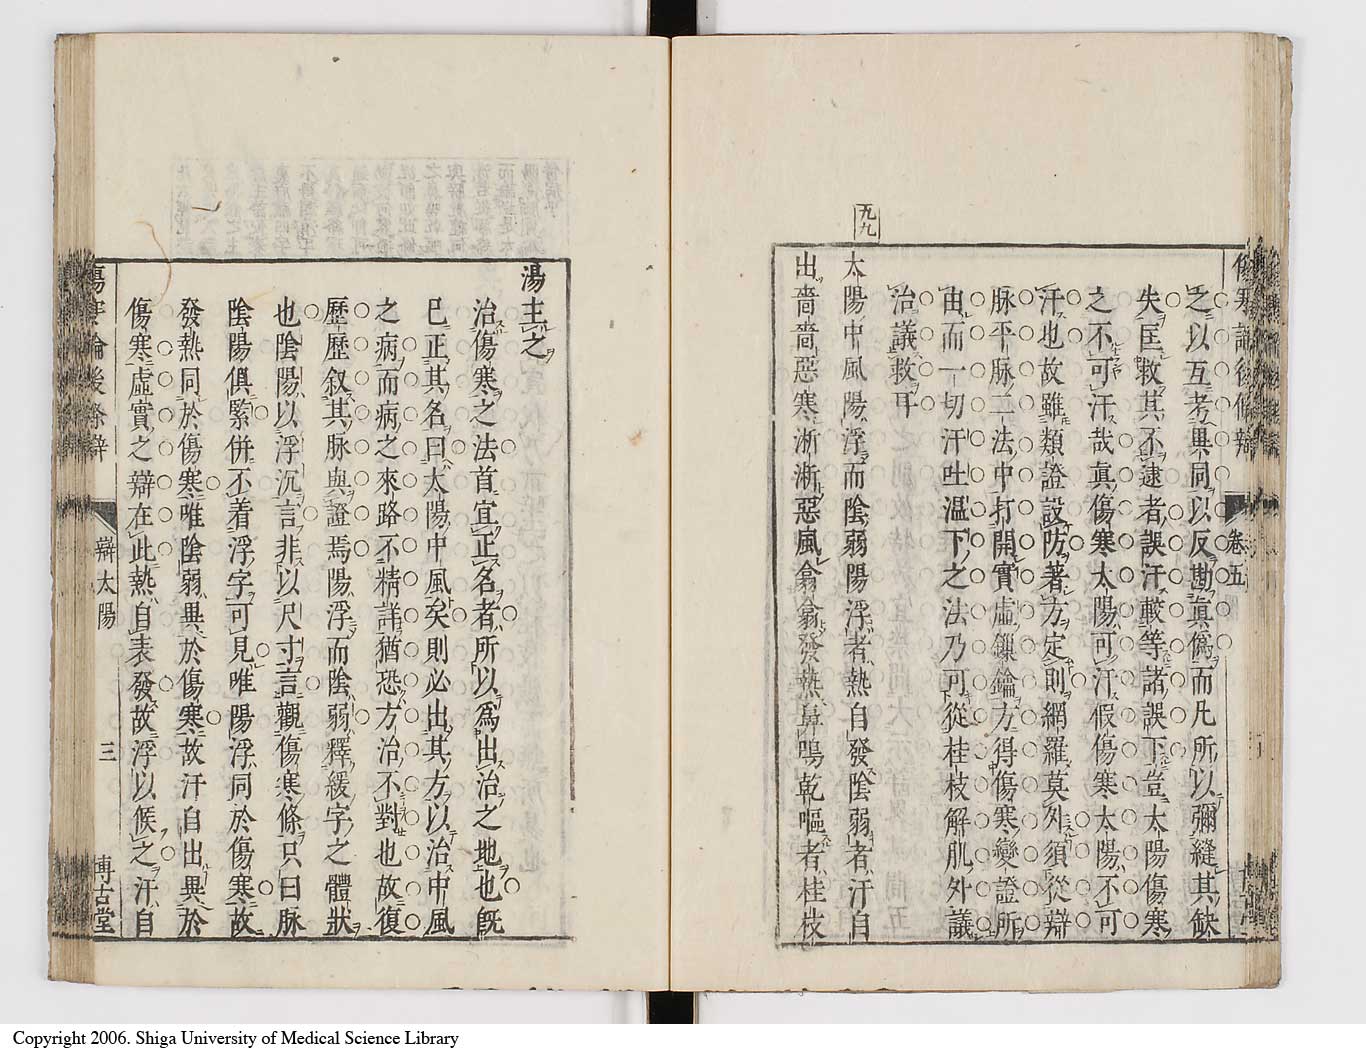 傷寒論後條辯
卷五
之以互考異同以反勘眞僞而凡所以彌縫其缺
失匡救其不逮者誤汗較等諸誤下豈太陽傷寒
之不可汗哉眞傷寒太陽可汗假傷寒太陽不可
汗也故雖類證設防著方定則網羅莫外須從辯
脉平脉二法中打開實虛鏁鑰方得傷寒變證所
由而一切汗吐溫下之法乃可從桂枝解肌外議
治議救耳
九九
太陽中風陽浮而陰弱陽浮者熱自發陰弱者汗自
出嗇嗇惡寒淅淅惡風翕翕發熱鼻鳴乾嘔者桂枝
湯主之
治傷寒之法首宜正名者所以爲出治之地也旣
已正其名曰太陽中風矣則必出其方以治中風
之病而病之來路不精詳猶恐方治不對也故復
歷歷叙其脉與證焉陽浮而陰弱釋緩字之體狀
也陰陽以浮沉言非以尺寸言觀傷寒條只曰脉
陰陽俱緊併不着浮字可見唯陽浮同於傷寒故
發熱同於傷寒唯陰弱異於傷寒故汗自出異於
傷寒虛實之辯在此熱自表發故浮以候之汗自
傷寒論後條辯
辯太陽
三
博古堂
Copyright 2006. Shiga University of Medical Science Library